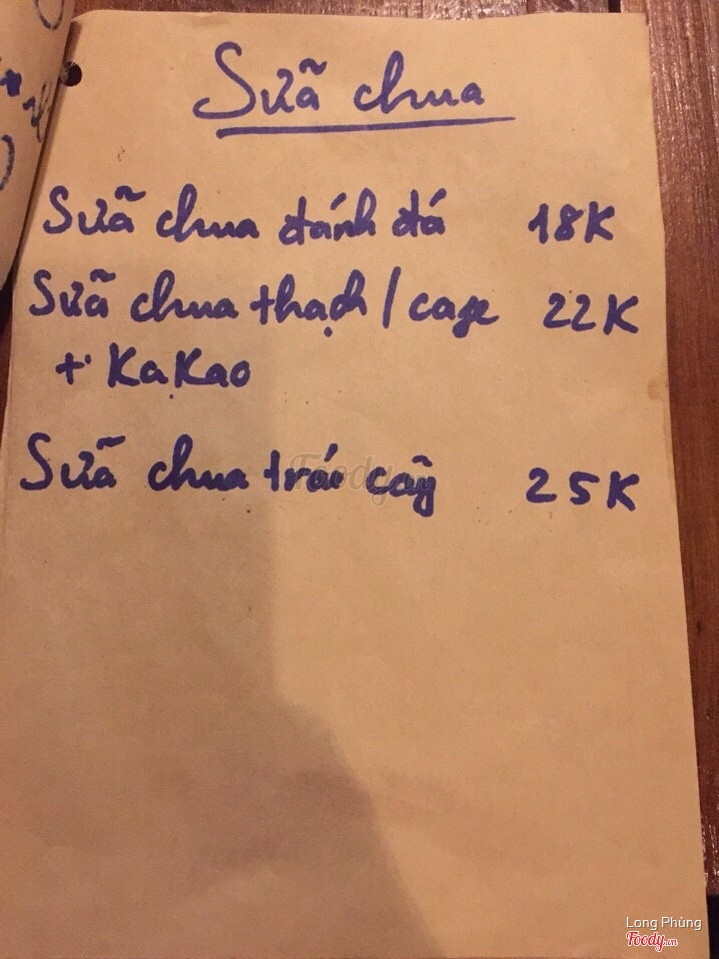 Sữa chua
Sữa chua đánh đá 18K
Sữa chua thạch / cafe 22K
+ KaKao
Sữa chua trái cây 25K
Foody.vn
Long Phùng
Foody.vn